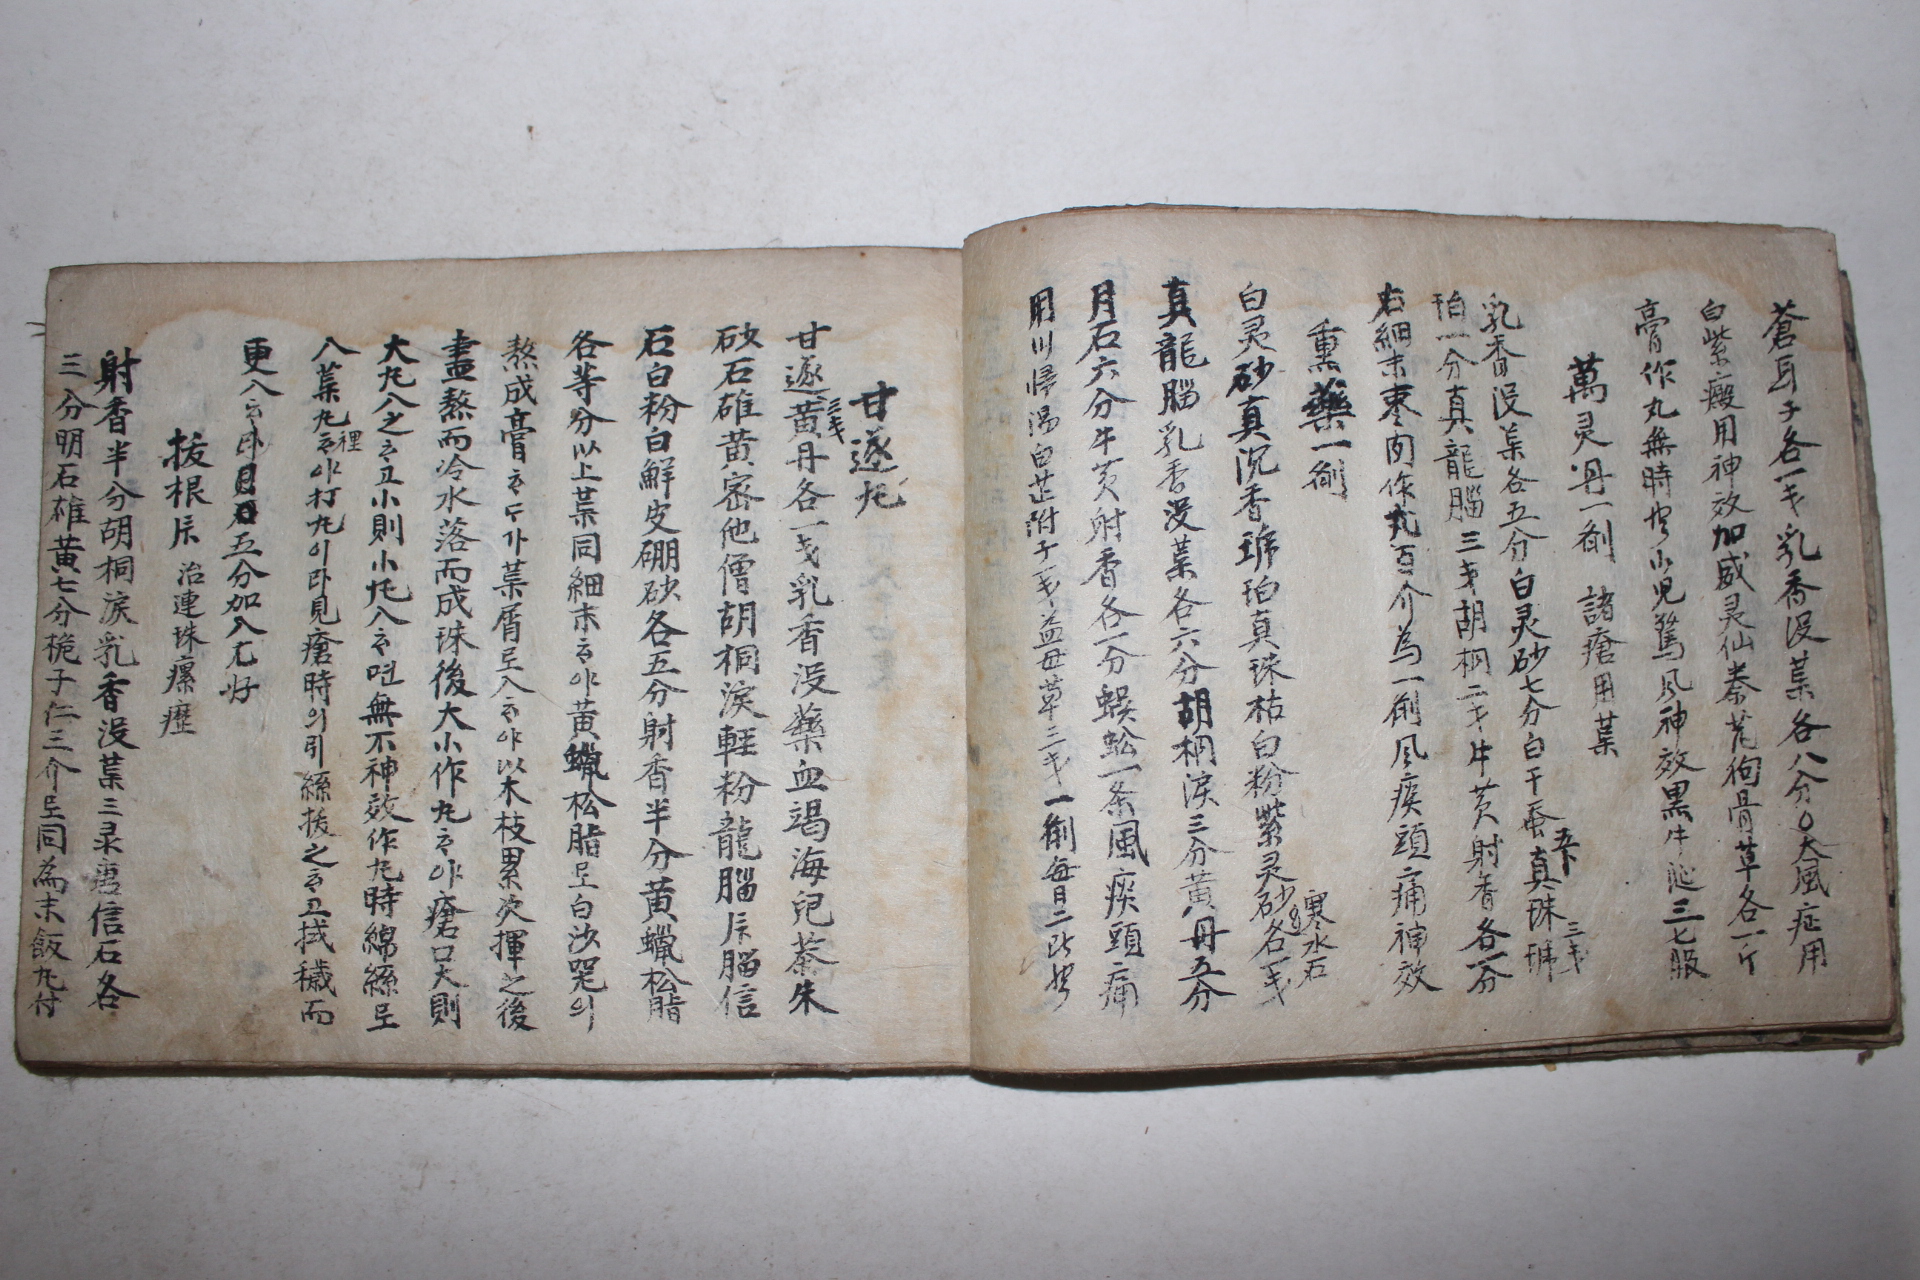 蒼耳子各一戔乳香沒葉各八分○大風症用
白紫癜用神效加威灵仙秦芃狗骨草各一斤
膏作丸無時 小児驚風神效黑牛 三七服
萬灵丹一劑 諸瘡用葉
乳香沒葉各五分白灵砂七分白干蚕 真珠 三戔 琥
珀一分真龍腦三戔胡桐二戔牛黃射香各一分
右細末棗肉作丸百介為一劑風疾頭痛神效
熏藥一劑
白灵砂真沉香琥珀真珠枯白粉紫灵砂 寒水石 各一戔
真龍腦乳香沒葉各六分胡桐淚三分黃丹五分
月石六分牛黃射香各一分蜈蚣一条風疾頭痛
用川帰湯白芷附子一戔益母草三戔一劑每日二
甘遂丸
甘遂 三戔 黃丹各一戔乳香沒藥血竭海兒茶朱
砂石雄黃宻他僧胡桐淚軽粉龍腦片腦信
石白粉白鮮皮硼砂各五分射香半分黃蠟松脂
各等分以上葉同細末 黃蠟松脂 白沙 의
熬成膏 葉屑 入 以木枝累次揮之後
盡熬而冷水落而成珠後大小作丸 瘡口大則
大丸入之 小則小丸入 無不神效作丸時綿絲
入葉丸 裡 打丸이 見瘡時의引絲拔之 拭穢而
更入 月石五分加入尤好
拔根片 治連珠瘰癧
射香半分胡桐淚乳香沒葉三彔唐信石各
三分明石雄黃七分梔子仁三介 同為末飯丸付